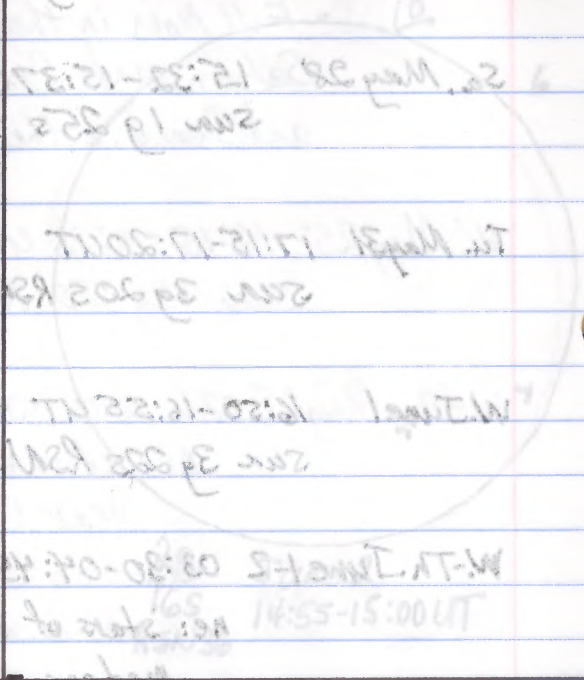 Sa. May 28 15:32-15:37
sun 1g 25s
Tu. May31 17:15-17:20UT
sun 3g 20s RS
W.June1 16:50-16:55UT
sun 3g 22s RSN
W-Th.June1-2 03:30-04:4
16s 14:55-15:00UT
ne: stars of